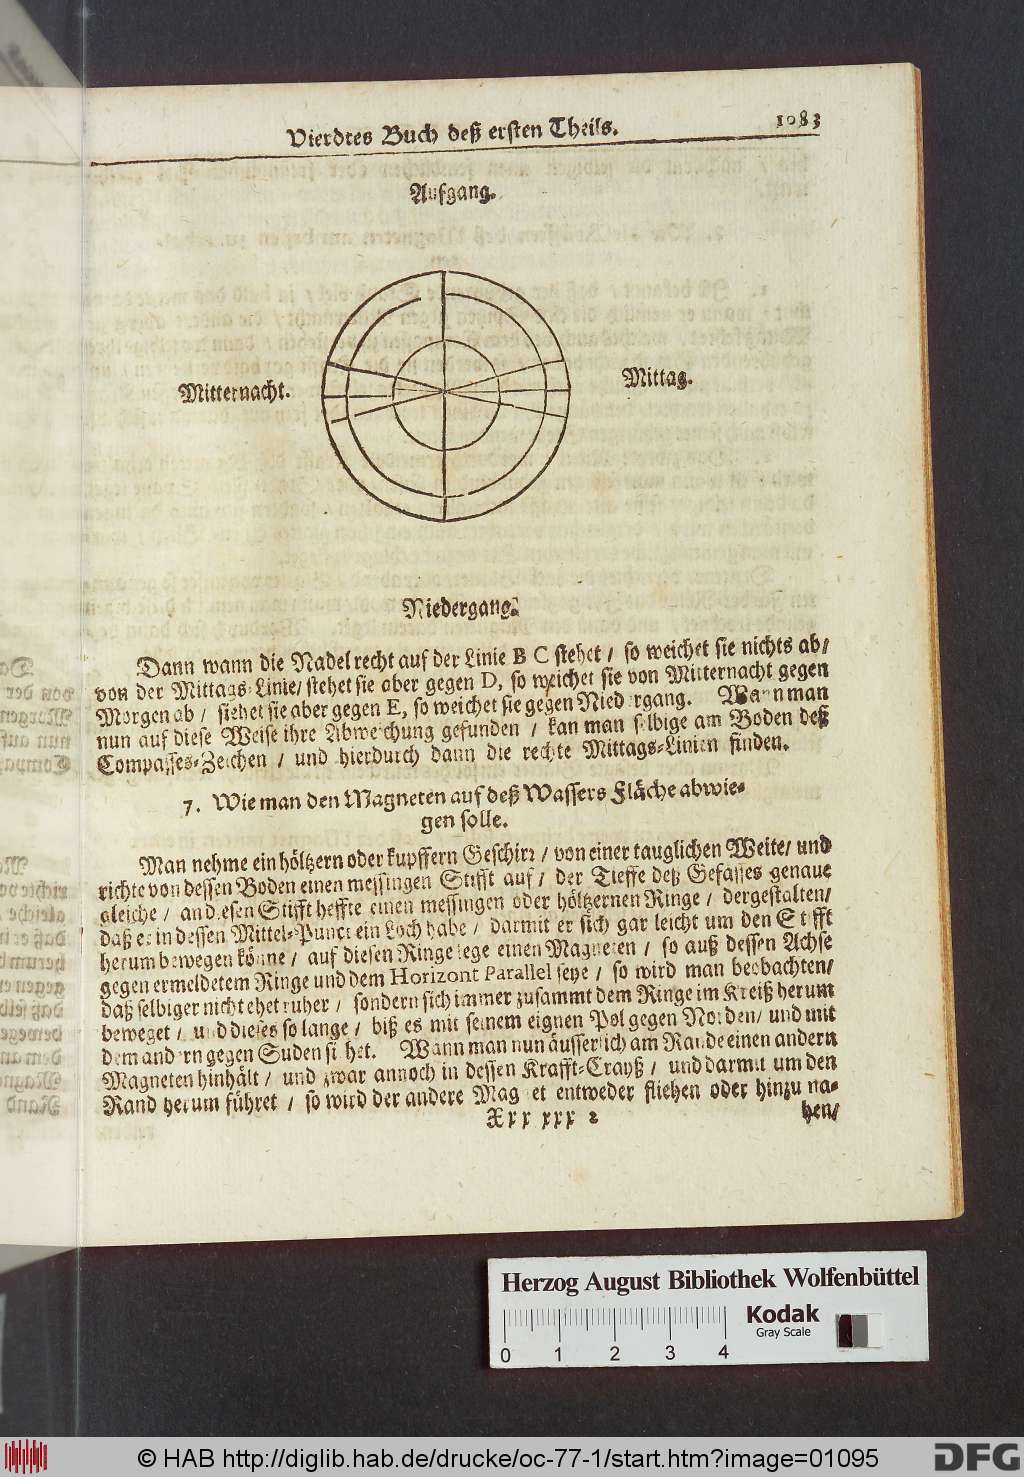 Vierdtes Buch deß ersten Theils. 1083
Aufgang.
Mitternacht.
Mittag.
Niedergang.
Dann wann die Nadel recht auf der Linie B C stehet / so weichet sie nichts ab/
von der Mittags-Linie/ stehet sie aber gegen D, so weichet sie von Mitternacht gegen
Morgen ab / stehet sie aber gegen E, so weichet sie gegen Niedergang. Wann man
nun auf diese Weise ihre Abweichung gefunden / kan man selbige am Boden deß
Compasses-Zeichen / und hierdurch dann die rechte Mittags-Linien finden.
7. Wie man den Magneten auf deß Wassers Fläche abwie-
gen solle.
Man nehme ein höltzern oder kupffern Geschirr / von einer tauglichen Weite/ und
richte von dessen Boden einen messingen Stifft auf / der Tieffe deß Gefässes genaue
gleiche / an diesen Stifft heffte einen messingen oder höltzernen Ringe / dergestalten/
daß er in dessen Mittel-Punct ein Loch habe / darmit er sich gar leicht um den Stifft
herum bewegen könne / auf diesen Ringe lege einen Magneten / so auß dessen Achse
gegen ermeldetem Ringe und dem Horizont Parallel seye / so wird man beobachten/
daß selbiger nicht ehet ruher / sondern sich immer zusammt dem Ringe im Kreiß herum
beweget / und dieses so lange / biß es mit seinem eignen Pol gegen Norden/ und mit
dem andern gegen Suden sihet. Wann man nun äusserlich am Rande einen andern
Magneten hinhält / und zwar annoch in dessen Krafft-Crayß / und darmit um den
Rand herum führet / so wird der andere Magnet entweder fliehen oder hinzu na-
Xxx xxx 2 hen/
Herzog August Bibliothek Wolfenbüttel
Kodak
Gray Scale
0 1 2 3 4
© HAB http://diglib.hab.de/drucke/oc-77-1/start.htm?image=01095
DFG